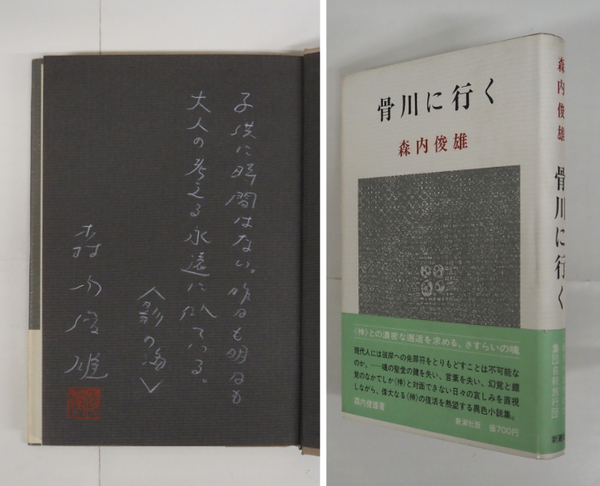 子供に時間はない。昨日も明日も
大人の考える永遠に似ている。
〈影の海〉
森内俊雄
骨川に行く
森内俊雄
〈神〉との濃密な邂逅を求める、さすらいの魂
現代人には彼岸への免罪符をとりもどすことは不可能な
のか。――魂の聖堂の鍵を失い、言葉を失い、幻覚と錯
覚のなかでしか〈神〉と対面できない日々の哀しみを直視
しながら、偉大なる〈神〉の復活を熱望する異色小説集。
森内俊雄著
新潮社版 価700円
森内俊雄 骨川に行く